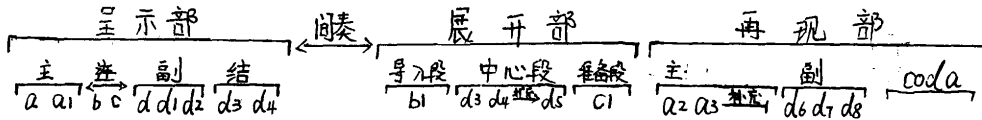 呈示部 间奏 展开部 再现部
主 连 副 结 导入段 中心段 准备段 主 副 coda
a a1 b c d d1 d2 d3 d4 b1 d3 d4 d5 c1 a2 a3 补充 d6 d7 d8